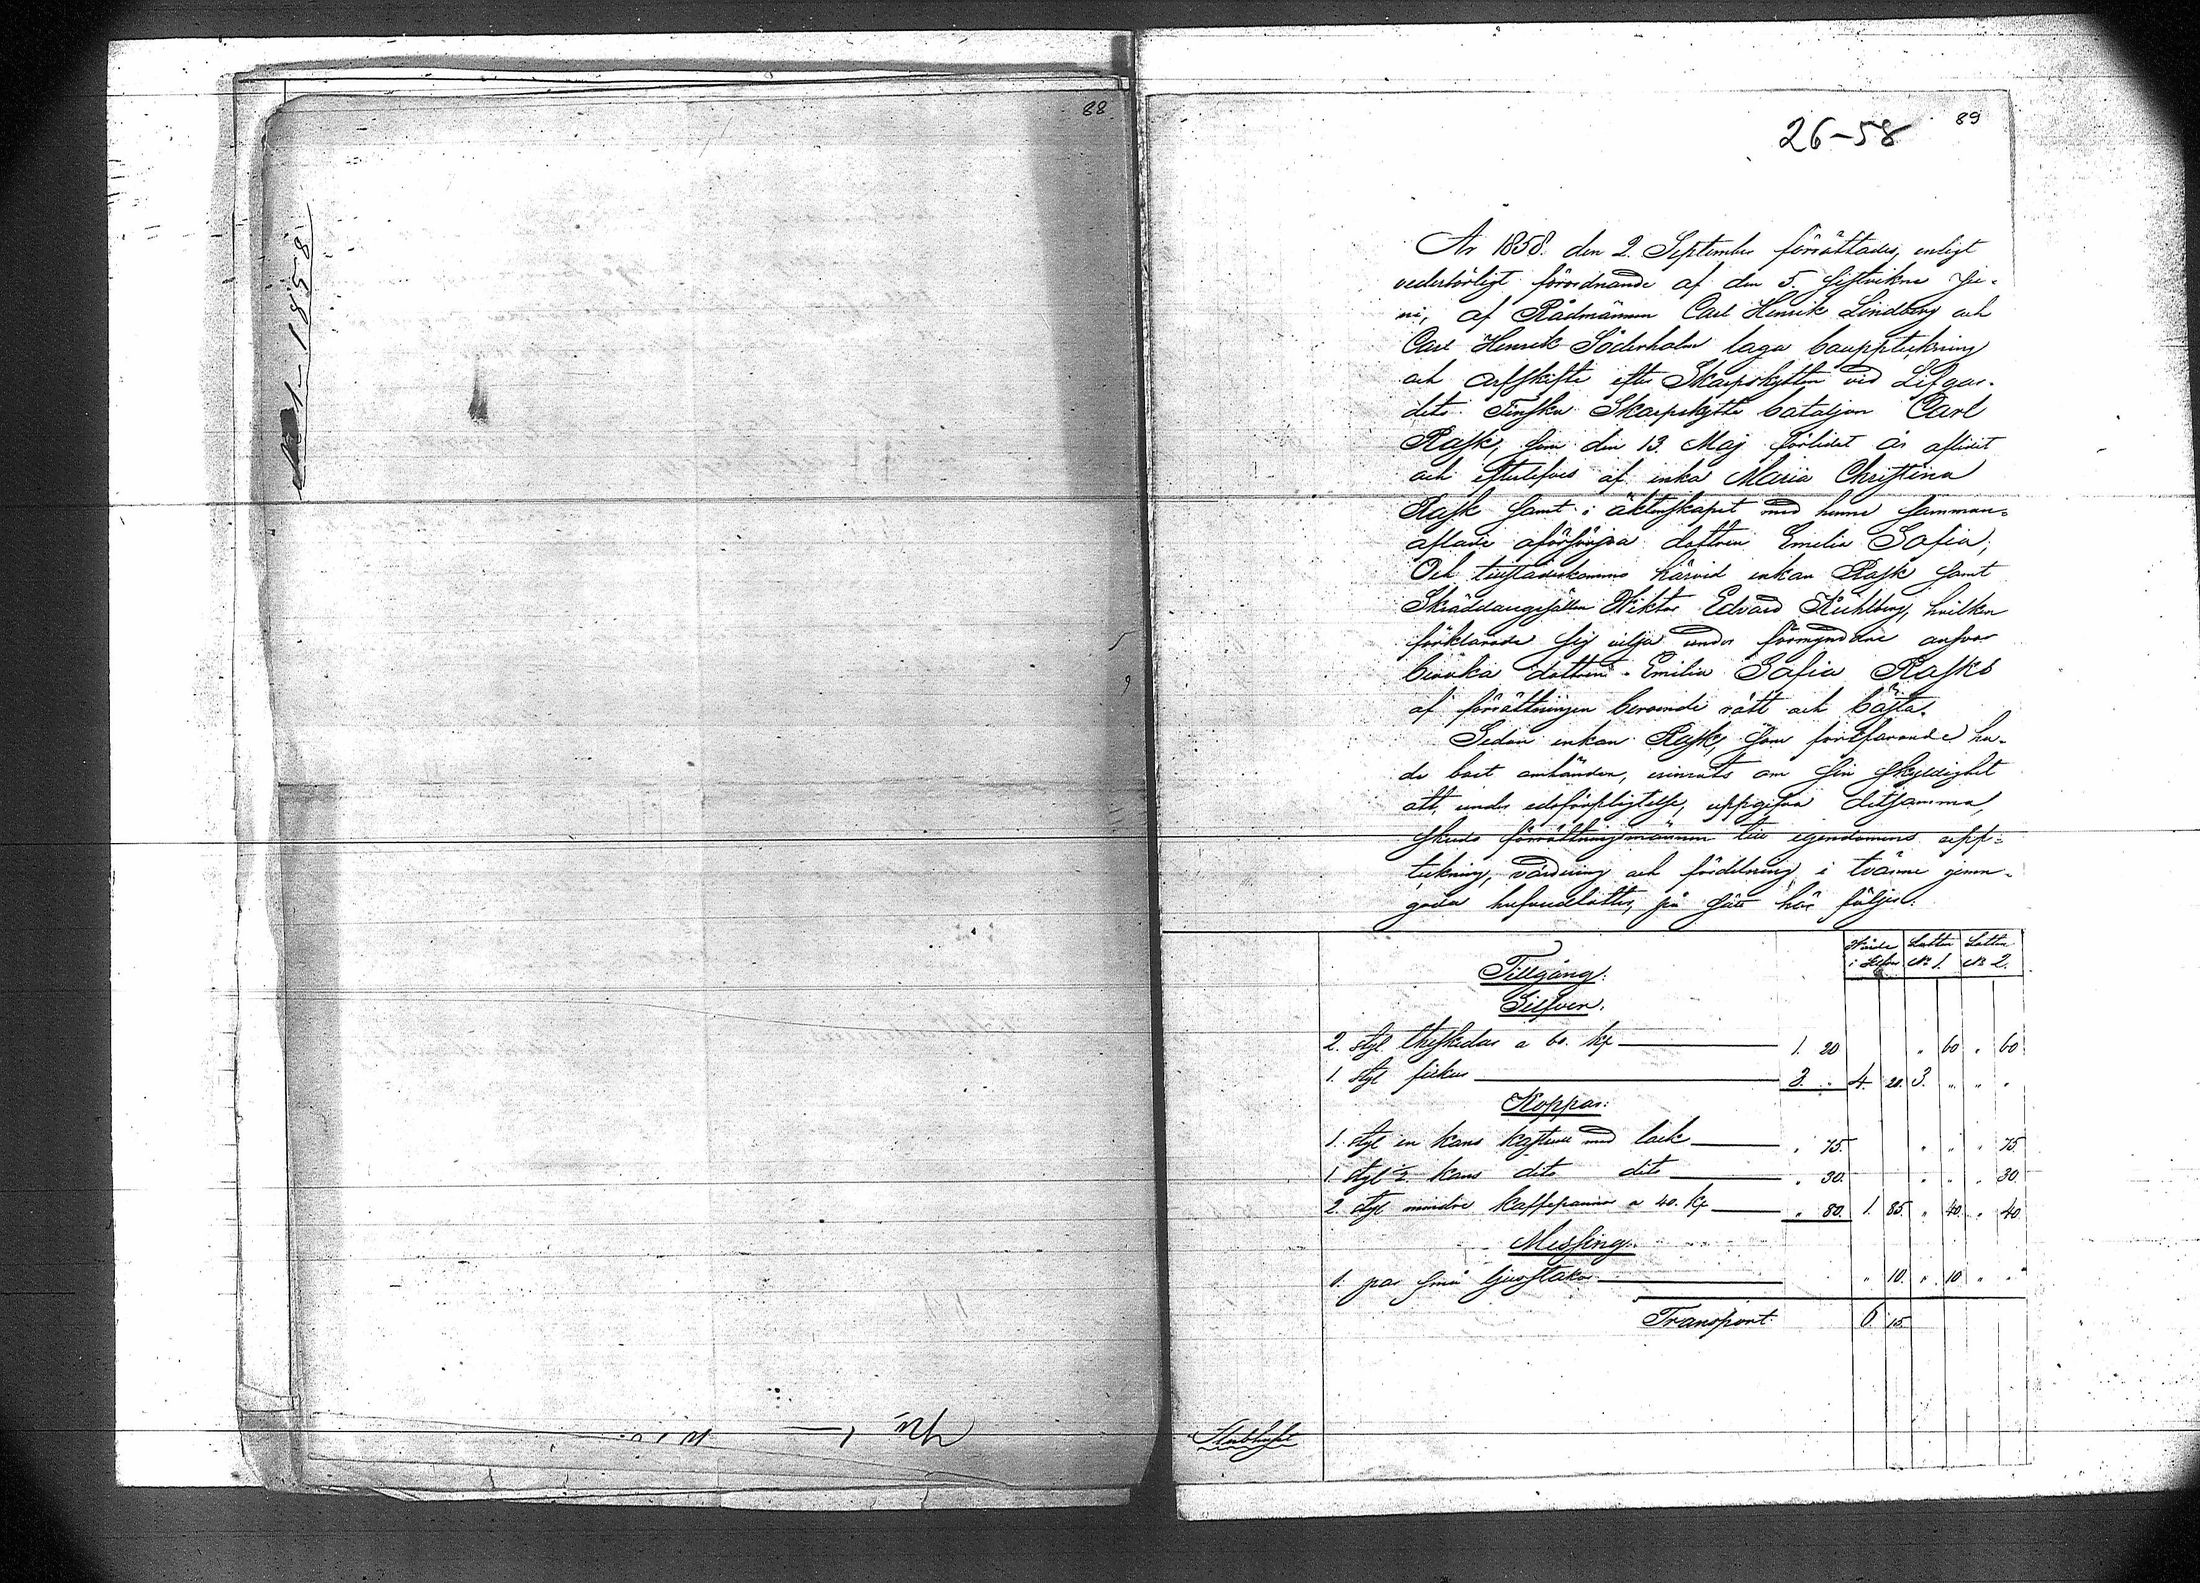 88
№ 1 1858
89
26-58
År 1858. den 2. September förrättades, enligt
vederbörligt förordnande af den 5. sistvikne Ju-
ni, af Rådmännen Carl Henrik Lindberg och
Carl Henrik Söderholm laga bouppteckning
och arfskifte efter Skarpskytten vid Lifgar-
dets Finska Skarpskytte bataljon Carl
Rask, som den 13. Maj förlidet år aflidit
och efterlefves af enka Maria Christina
Rask samt i äktenskapet med henne samman-
aflade oförsörjda dottren Emelia Sofia;
Och tillstädeskommo härvid enkan Rask samt
Skräddaregesällen Wiktor Edvard Stuhlberg, hvilken
förklarade sig vilja under förmyndare ansvar
bevaka dottren Emilia Sofia Rasks
af förrättningen beroende rätt och bästa.
Sedan enkan Rask, som fortfarande ha-
de boet omhänder, erinrats om sin skyldighet
att, under edsförpligtelse, uppgifva detsamma,
skreds förrättningsmännen till egendomens upp-
teckning, värdering och fördelning i tvänne jemn-
goda hufvudlotter, på sätt här följer:
Wärde i Silfver Lotten № 1. Lotten № 2.
Tillgång:
Silfver.
2. styl. theskedar a 60. kp 1. 20 " 60 " 60
1. styl fickur 3. " 4. 20. 3. " " "
Koppar:
1. styl en kans kastrull med lock " 75. " " " 75.
1 styl ½ kans dito dito " 30. " " " 30
2. styl mindre kaffepannor a 40. kp " 80. 1. 85. " 40. " 40
Messing.
1. par små ljusstakar " 10. " 10 " "
Transport. 6 15